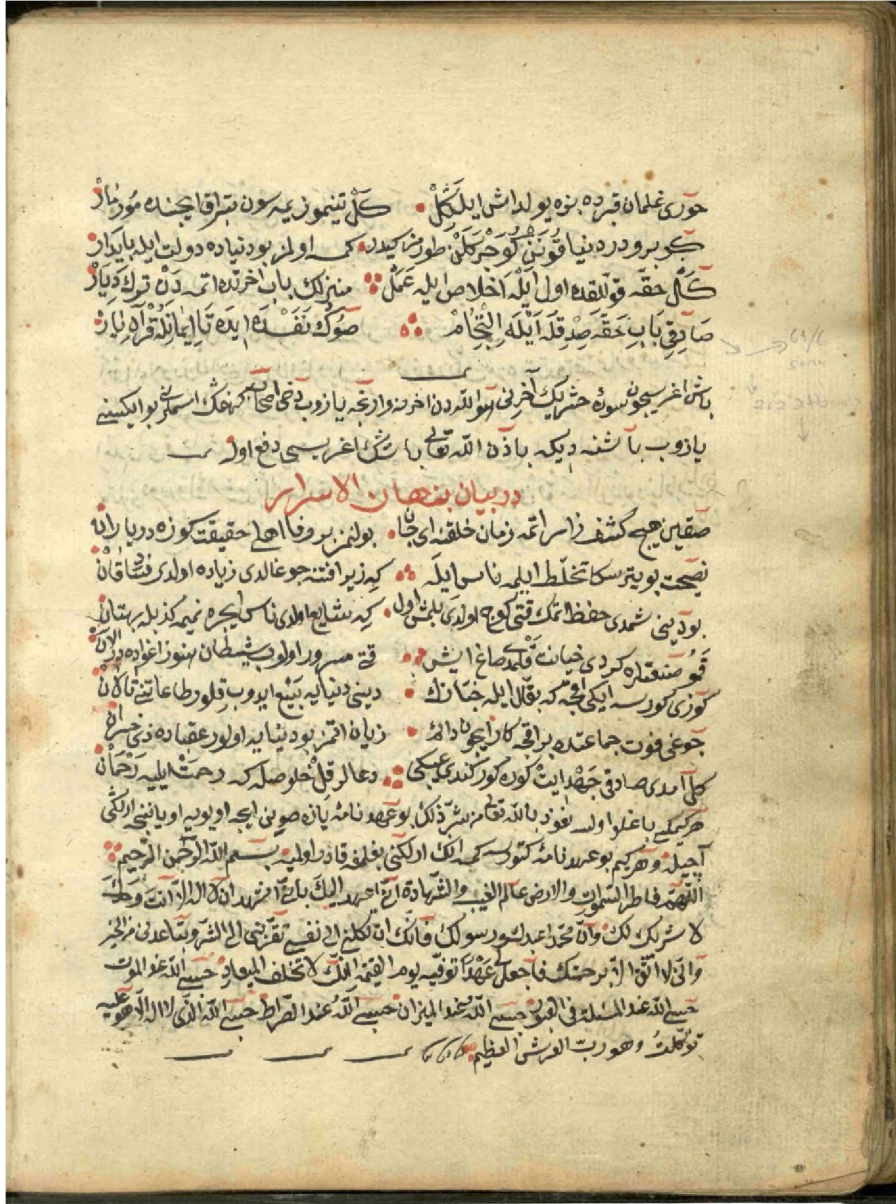 حوری غلمان قبرده بزه یولداش ایله کل کل تنیموز یمه سون تبراق ایچنده مور مار
کوبرودر دنیا قونن کوجر کلن طورمز کیدر کمه اولمز بو دنیاده دولت ایله پایدار
کل حقه قوللقده اول ایله اخلاص ایله عمل منزلك یاب اخرتده اتمه دن ترك دیار
صادقی باب حقه صدقله ایله التجام صوك نفسده ایده تا ایمانله قرآن یار
باش اغریسیچون سوره حشریك آخرنی هو الله دن اخرنه وارنجه یازوب دخی اصحاب كهفك اسملرنی بو ایکیسنی
یازوب باشنه دیکه باذن الله تعالی باشك اغریسی دفع اولا
در بیان پنهان الاسرار
صقین هیچ كشف راز اتمه زمان خلقنه ای جان بولنمز بو وفا اهلی حقیقت کوزه در یارانه
نصیحت بو یتر سکا تخلط ایلمه ناس ایله که زیرا فتنه جوغالدی زیاده اولدی فساقان
بو دینی شمدی حفظ اتمك قتی کوج اولدی بلمش اول که شایع اولدی ناس ایجره نمیمه کذبله بهتان
قمو صنعتلره کردی خیانت قلمدی صاغ ایش قتی مسرور اولوب شیطان هنوز اغواده در الان
کوزی کورسه ایکی اقجه که بقال ایله خبازك دینی دنیایه بیع ایدوب قلور طاعاتنی تالان
جوغی فوت جماعتده بر اقجه کار ایچون دائم زیان اتمز بو دنیایه اولور عقباده ذی خسران
کل امدی صادقی جهد ایت کوره کور کندی عیبکی دعالر قل خلوصله که رحمت ایلیه رحمان
هر کیمکه باغلو اولسه نعوذ بالله تعالی من شر ذلك بو عهدنامه یازه صوین ایچه اویویه اویاننجه ارلکی
آجیله و هر کیم بو عهدنامه کتورسه کمسه انك ارلکنی بغلمغه قادر اولمیه بسم الله الرحمن الرحیم
اللهم فاطر السموات والارض عالم الغیب والشهادة انی اعهد الیك بانی اشهد ان لا اله الا انت وحدك
لا شریك لك وان محمدا عبدك ورسولك فانك ان تکلنی الی نفسی تقربنی الی الشر وتباعدنی من الخیر
وانی لا اثق الا برحمتك فاجعل لی عهدا توفیه یوم القیمة انك لا تخلف المیعاد حسبی الله عند الموت
حسبی الله عند المسئلة فی القبر حسبی الله عند المیزان حسبی الله عند الصراط حسبی الله الذی لا اله الا هو علیه
توکلت وهو رب العرش العظیم